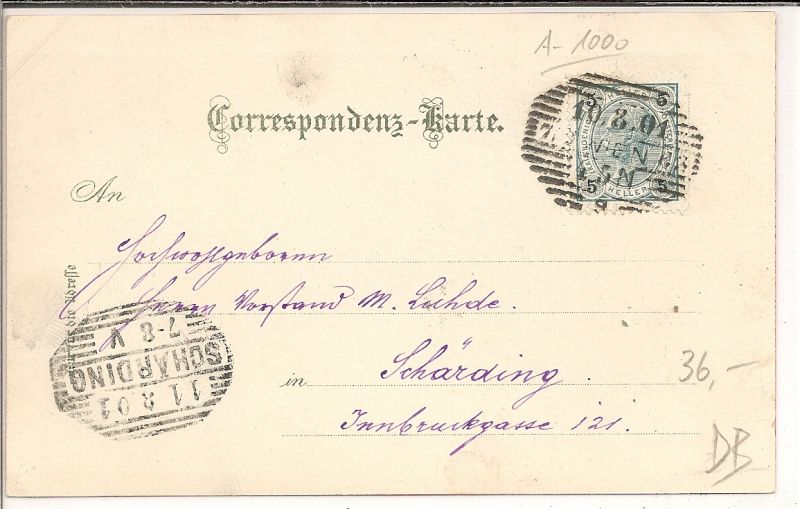 A-1000
Correspondenz-Karte.
5 5
10.8.01
WIEN
5 N
5 HELLER 5
9
An
Hochwohlgeboren
Herrn Vorstand M. Lühde.
für die Adresse
in Schärding.
Innbruckgasse 121.
SCHÄRDING
7-8 V
11 8 01
36,-
DB